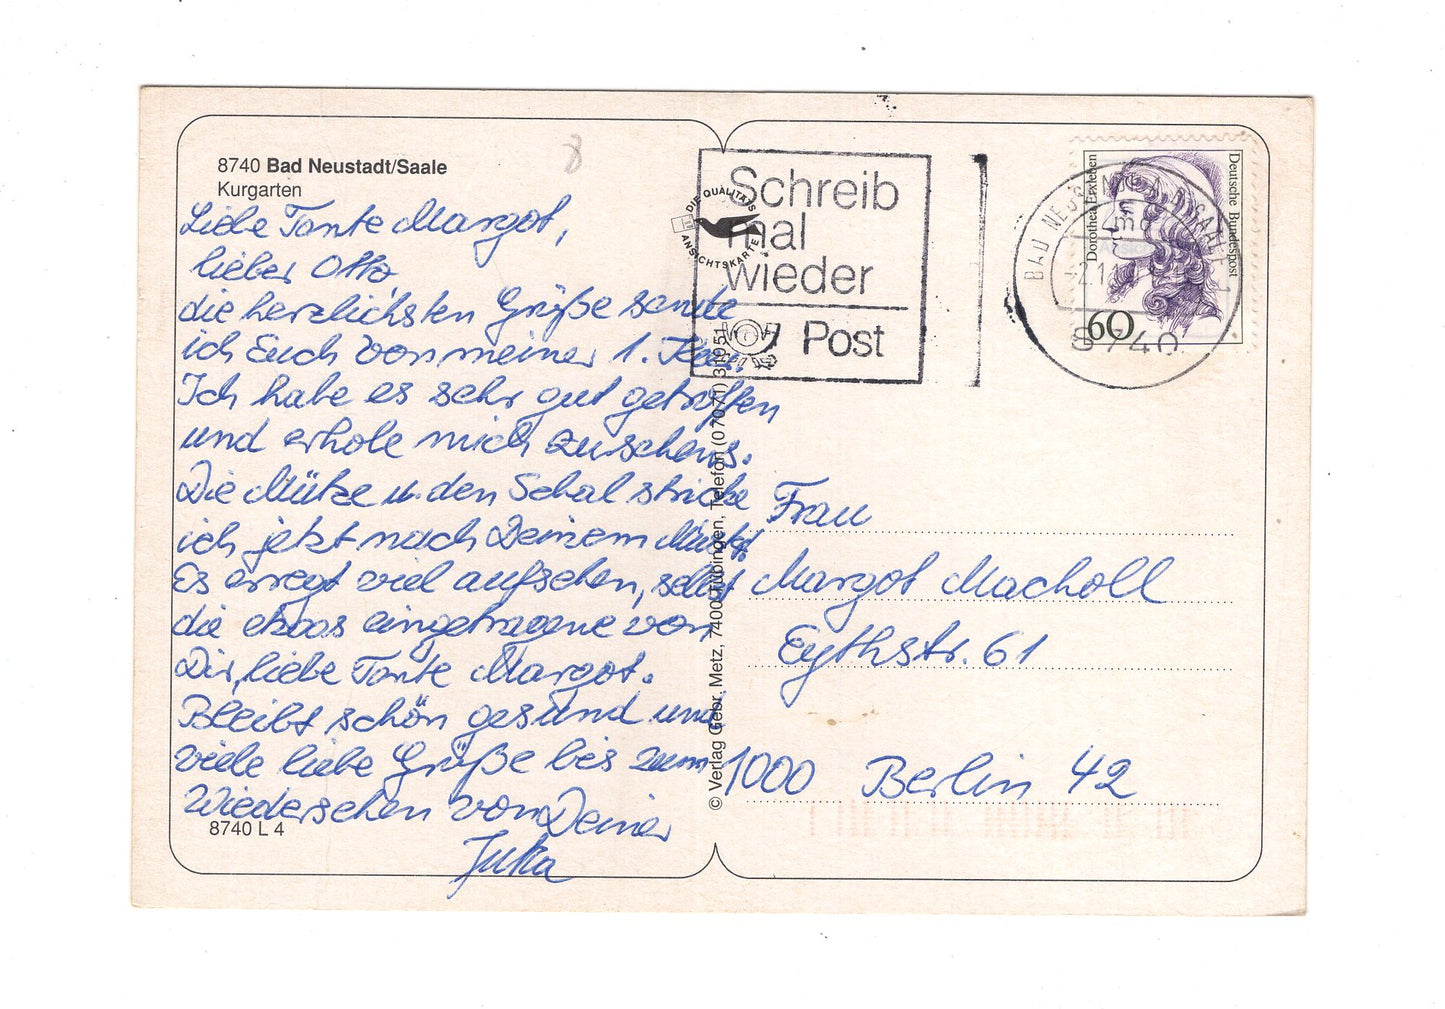 8740 Bad Neustadt/Saale
Kurgarten
Liebe Tante Margot,
lieber Otto,
die herzlichsten Grüße sende
ich Euch von meiner 1. Kur.
Ich habe es sehr gut getroffen
und erhole mich zusehens.
Die Mütze u. den Schal stricke
ich jetzt nach Deinem
Es erregt viel aufsehen, selbst
die etwas eingetragene von
Dir, liebe Tante Margot.
Bleibt schön gesund und
viele liebe Grüße bis zum
Wiedersehen von Deiner
Jutta
8740 L 4
© Verlag Gebr. Metz, 7400 Tübingen, Telefon (07071)
DIE QUALITÄTS
ANSICHTSKARTE
Schreib
mal
wieder
Post
BAD NEUSTADT A D SAALE 1
8740
Deutsche Bundespost
Dorothea Erxleben
60
Frau
Margot Macholl
Eythstr. 61
1000 Berlin 42